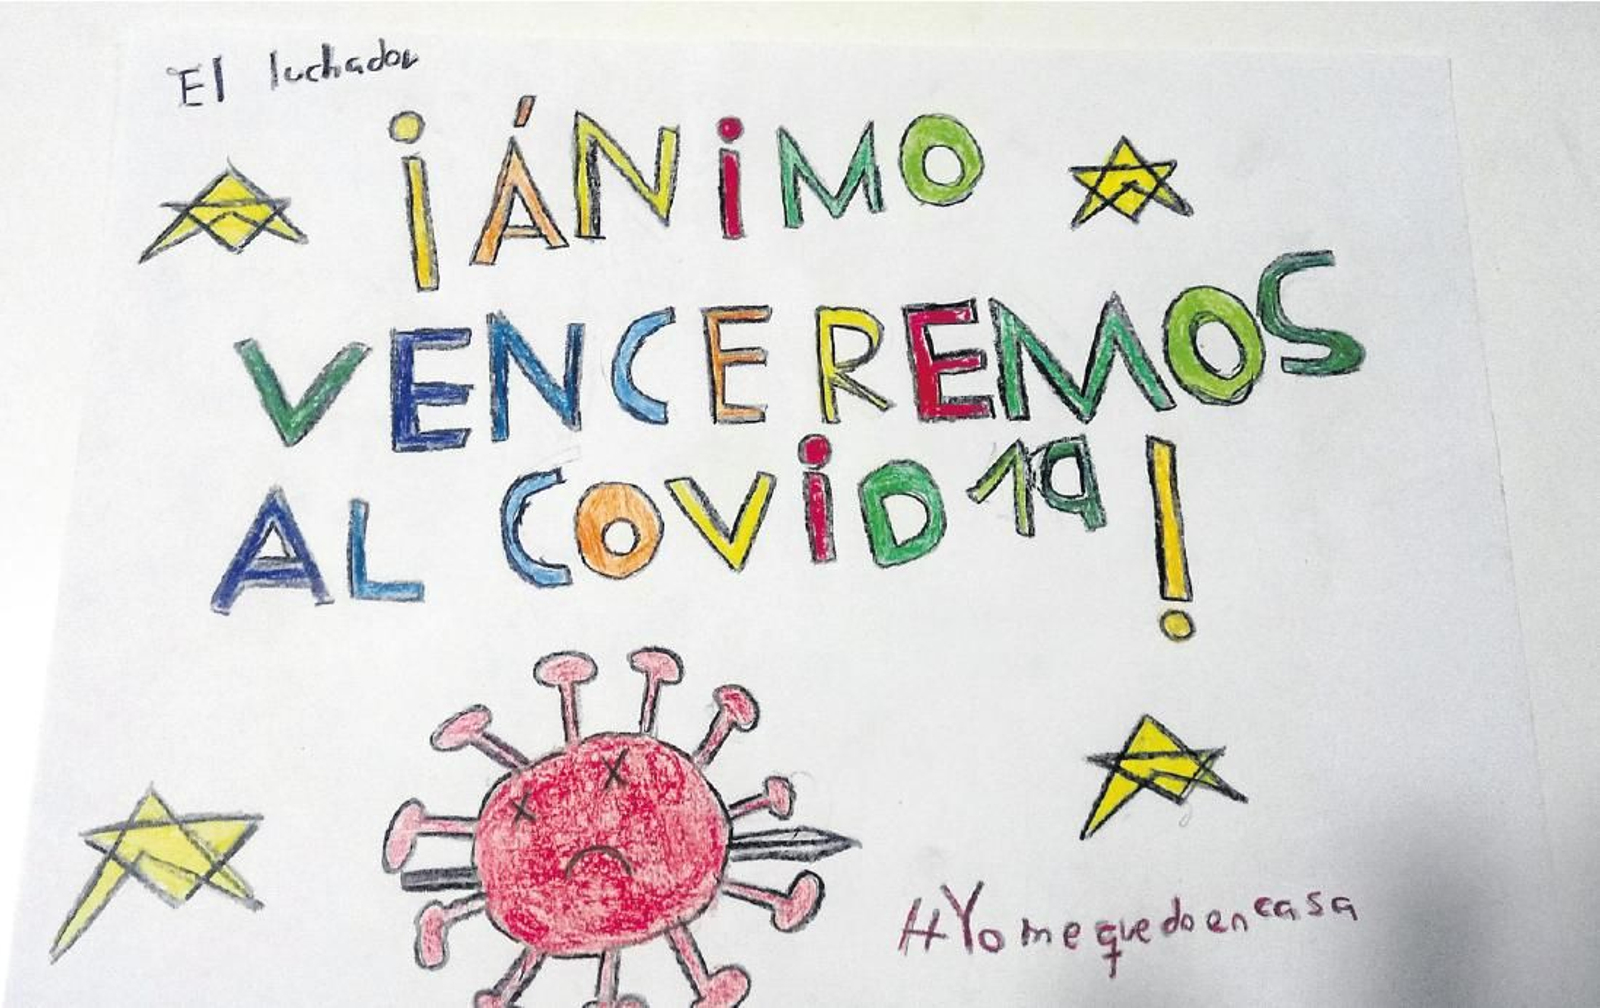 El luchador
¡ÁNiMO
VENCEREMOS
AL COViD 19!
#Yomequedoencasa